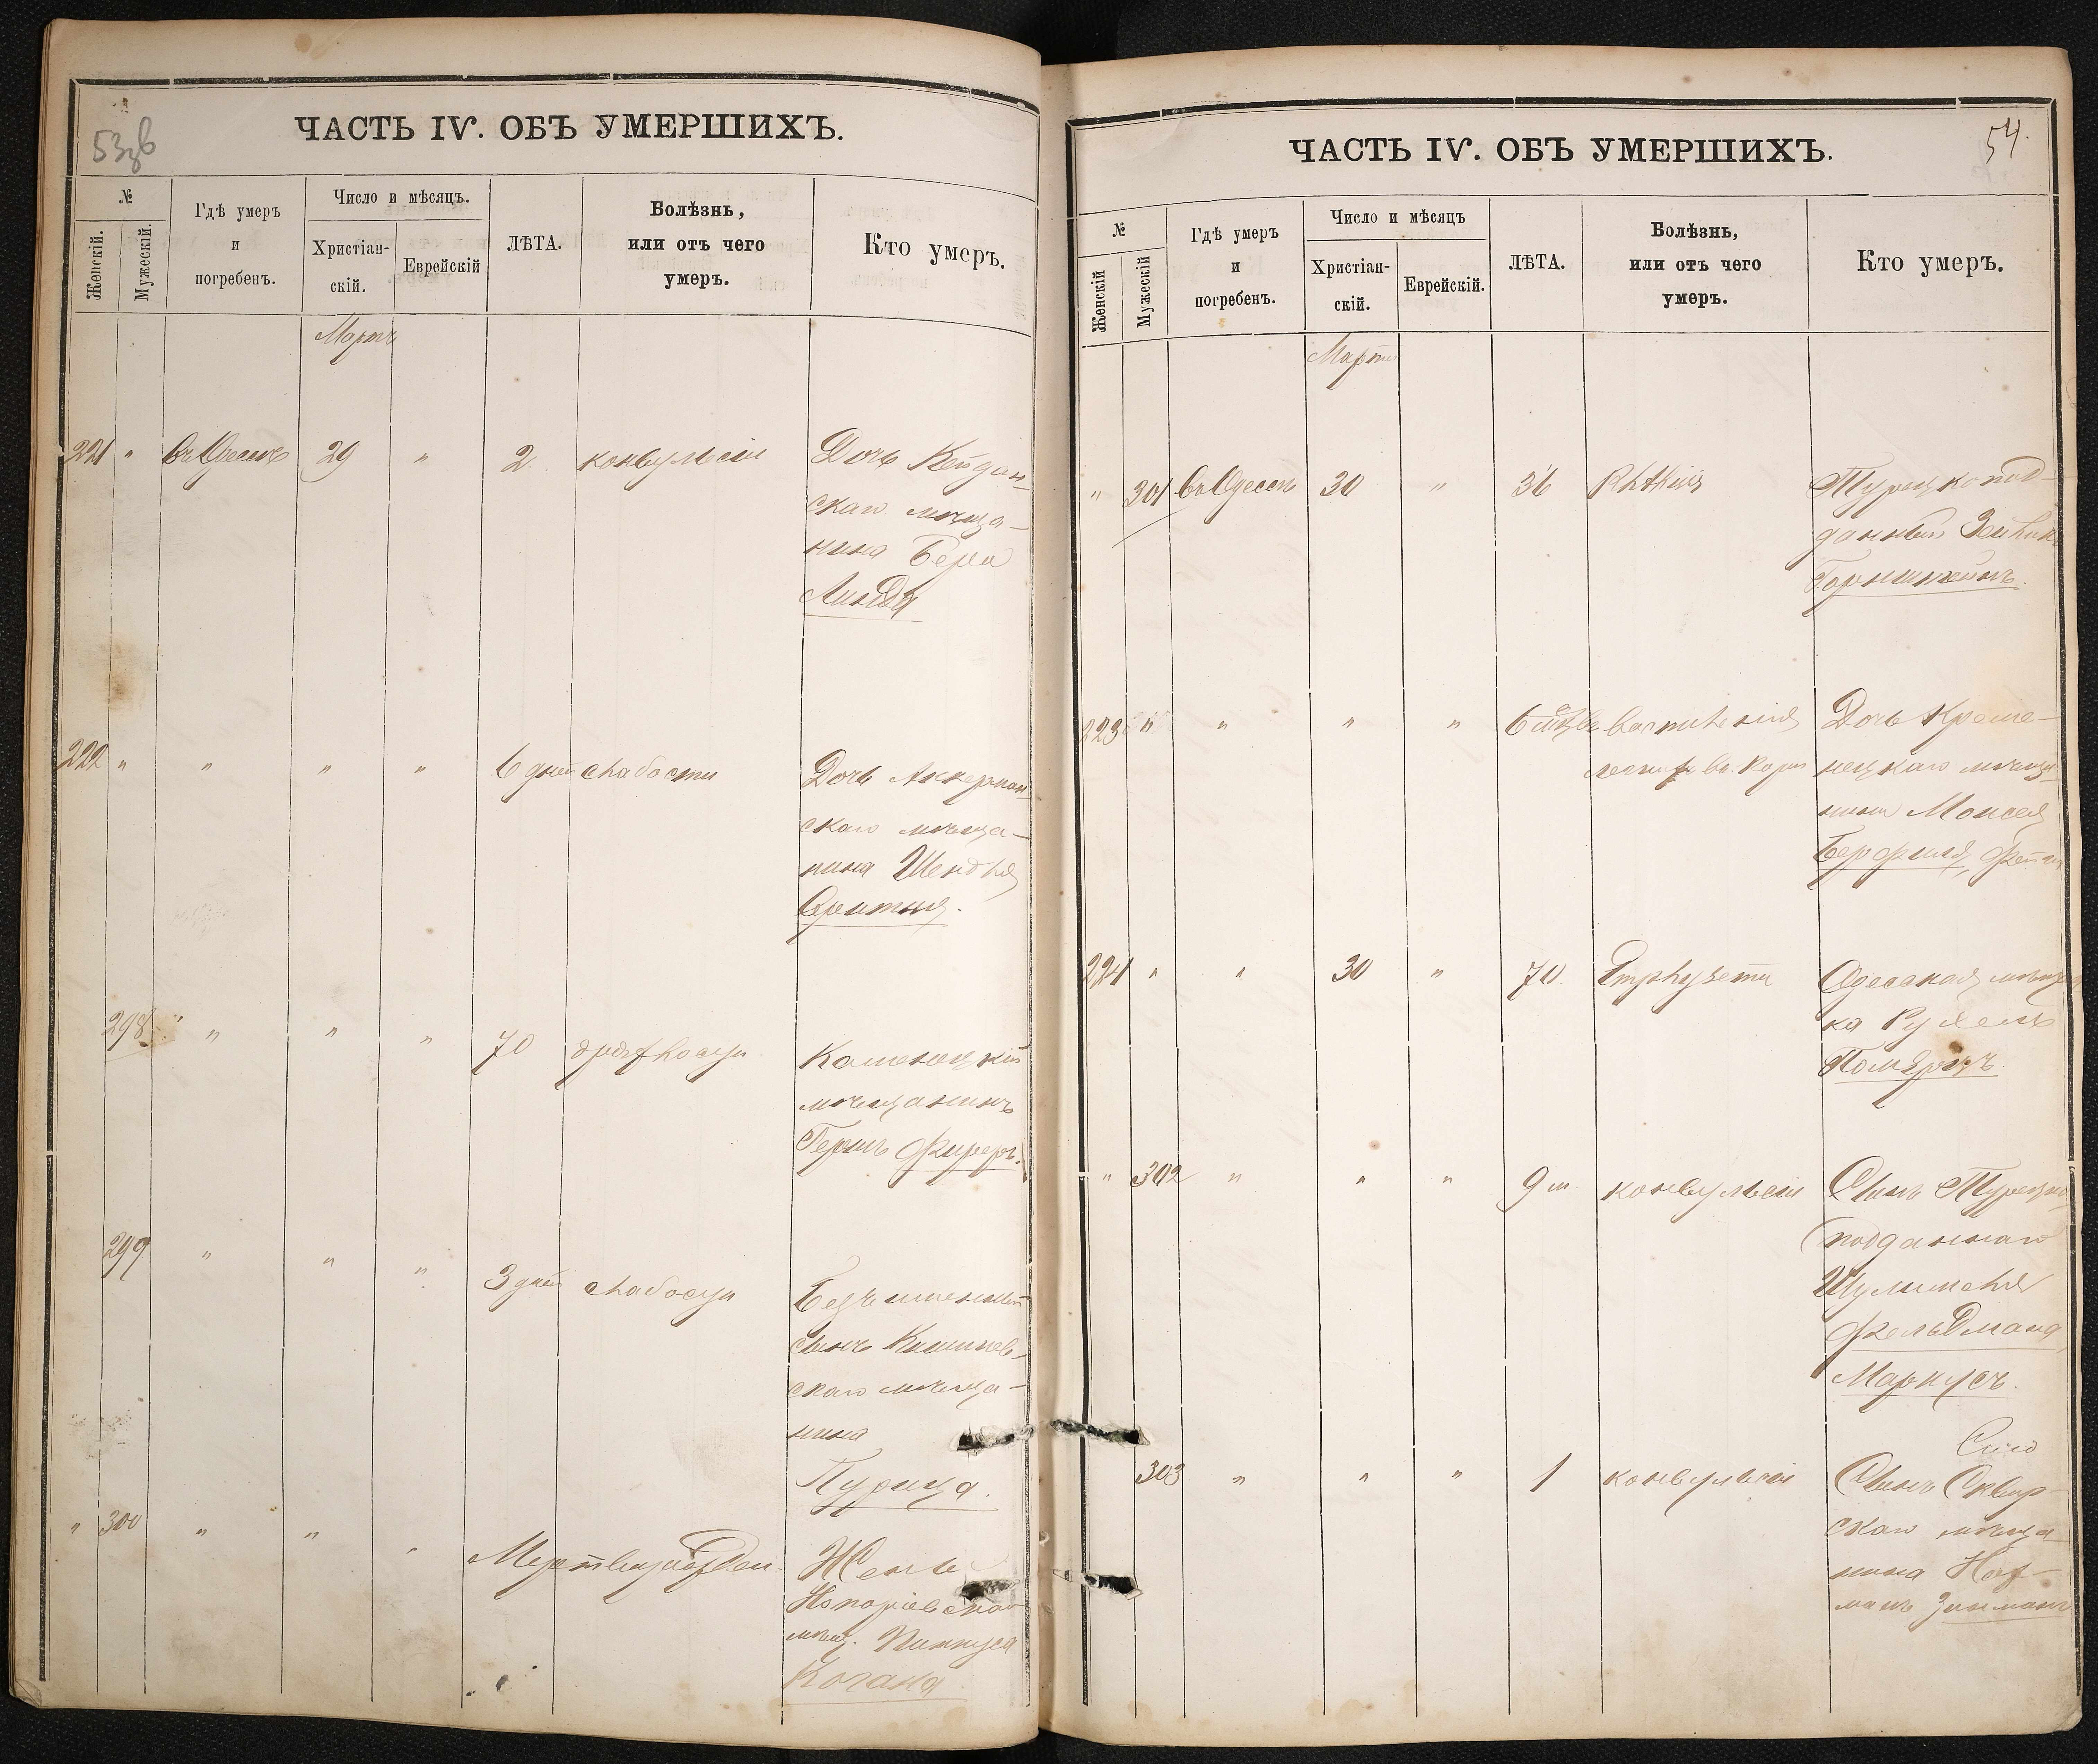 53 об
ЧАСТЬ IV. ОБЪ УМЕРШИХЪ.
№
Женскій.
Мужескій.
Гдѣ умеръ
и
погребенъ.
Число и мѣсяцъ.
Христіан-
скій.
Еврейскій
ЛѢТА.
Болѣзнь,
или отъ чего
умеръ.
Кто умеръ.
Мартъ
221 " въ Одессѣ 29 " 2 конвульсіи Дочь Кейдан-
скаго мѣща-
нина Бера
Линда
222 " " " " 6 дней слабости Дочь Аккерман-
скаго мѣща-
нина Шендля
298 " " " " 70 дряхлости Каменецкій
мѣщанинъ
Гершъ Фиреръ.
299 " " " 3 дней слабости Безъименный
сынъ Кишинев-
скаго мѣща-
нина
Пурица.
" 300 " " " Мертворожден. Жены
мѣщ. Пинкуса
Когана
54.
ЧАСТЬ IV. ОБЪ УМЕРШИХЪ.
№
Женскій
Мужескій
Гдѣ умеръ
и
погребенъ.
Число и мѣсяцъ
Христіан-
скій.
Еврейскій.
ЛѢТА.
Болѣзнь,
или отъ чего
умеръ.
Кто умеръ.
Мартъ
" 301 въ Одессѣ 30 " 36 Турецкопод-
данный
223 " " " " 6 мѣс. воспаленія Дочь Креме-
легкихъ нецкаго мѣща-
нина Моисея
224 " " 30 " 70 Одесская мѣщан-
ка Рухель
Помѣранцъ.
" 302 " " " 9 м. конвульсіи Сынъ Турецко
подданнаго
Шулима
Фельдмана,
Маркусъ.
303 " " " 1 конвульсіи Сынъ Сквир-
скаго мѣща-
нина Нах-
манъ Зинманъ